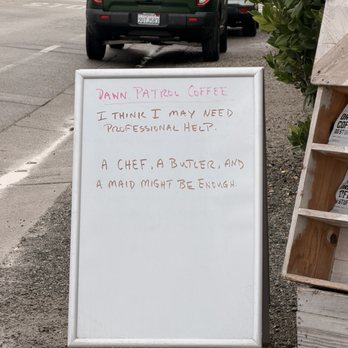 DAWN PATROL COFFEE
I THINK I MAY NEED
PROFESSIONAL HELP.
A CHEF, A BUTLER, AND
A MAID MIGHT BE ENOUGH.